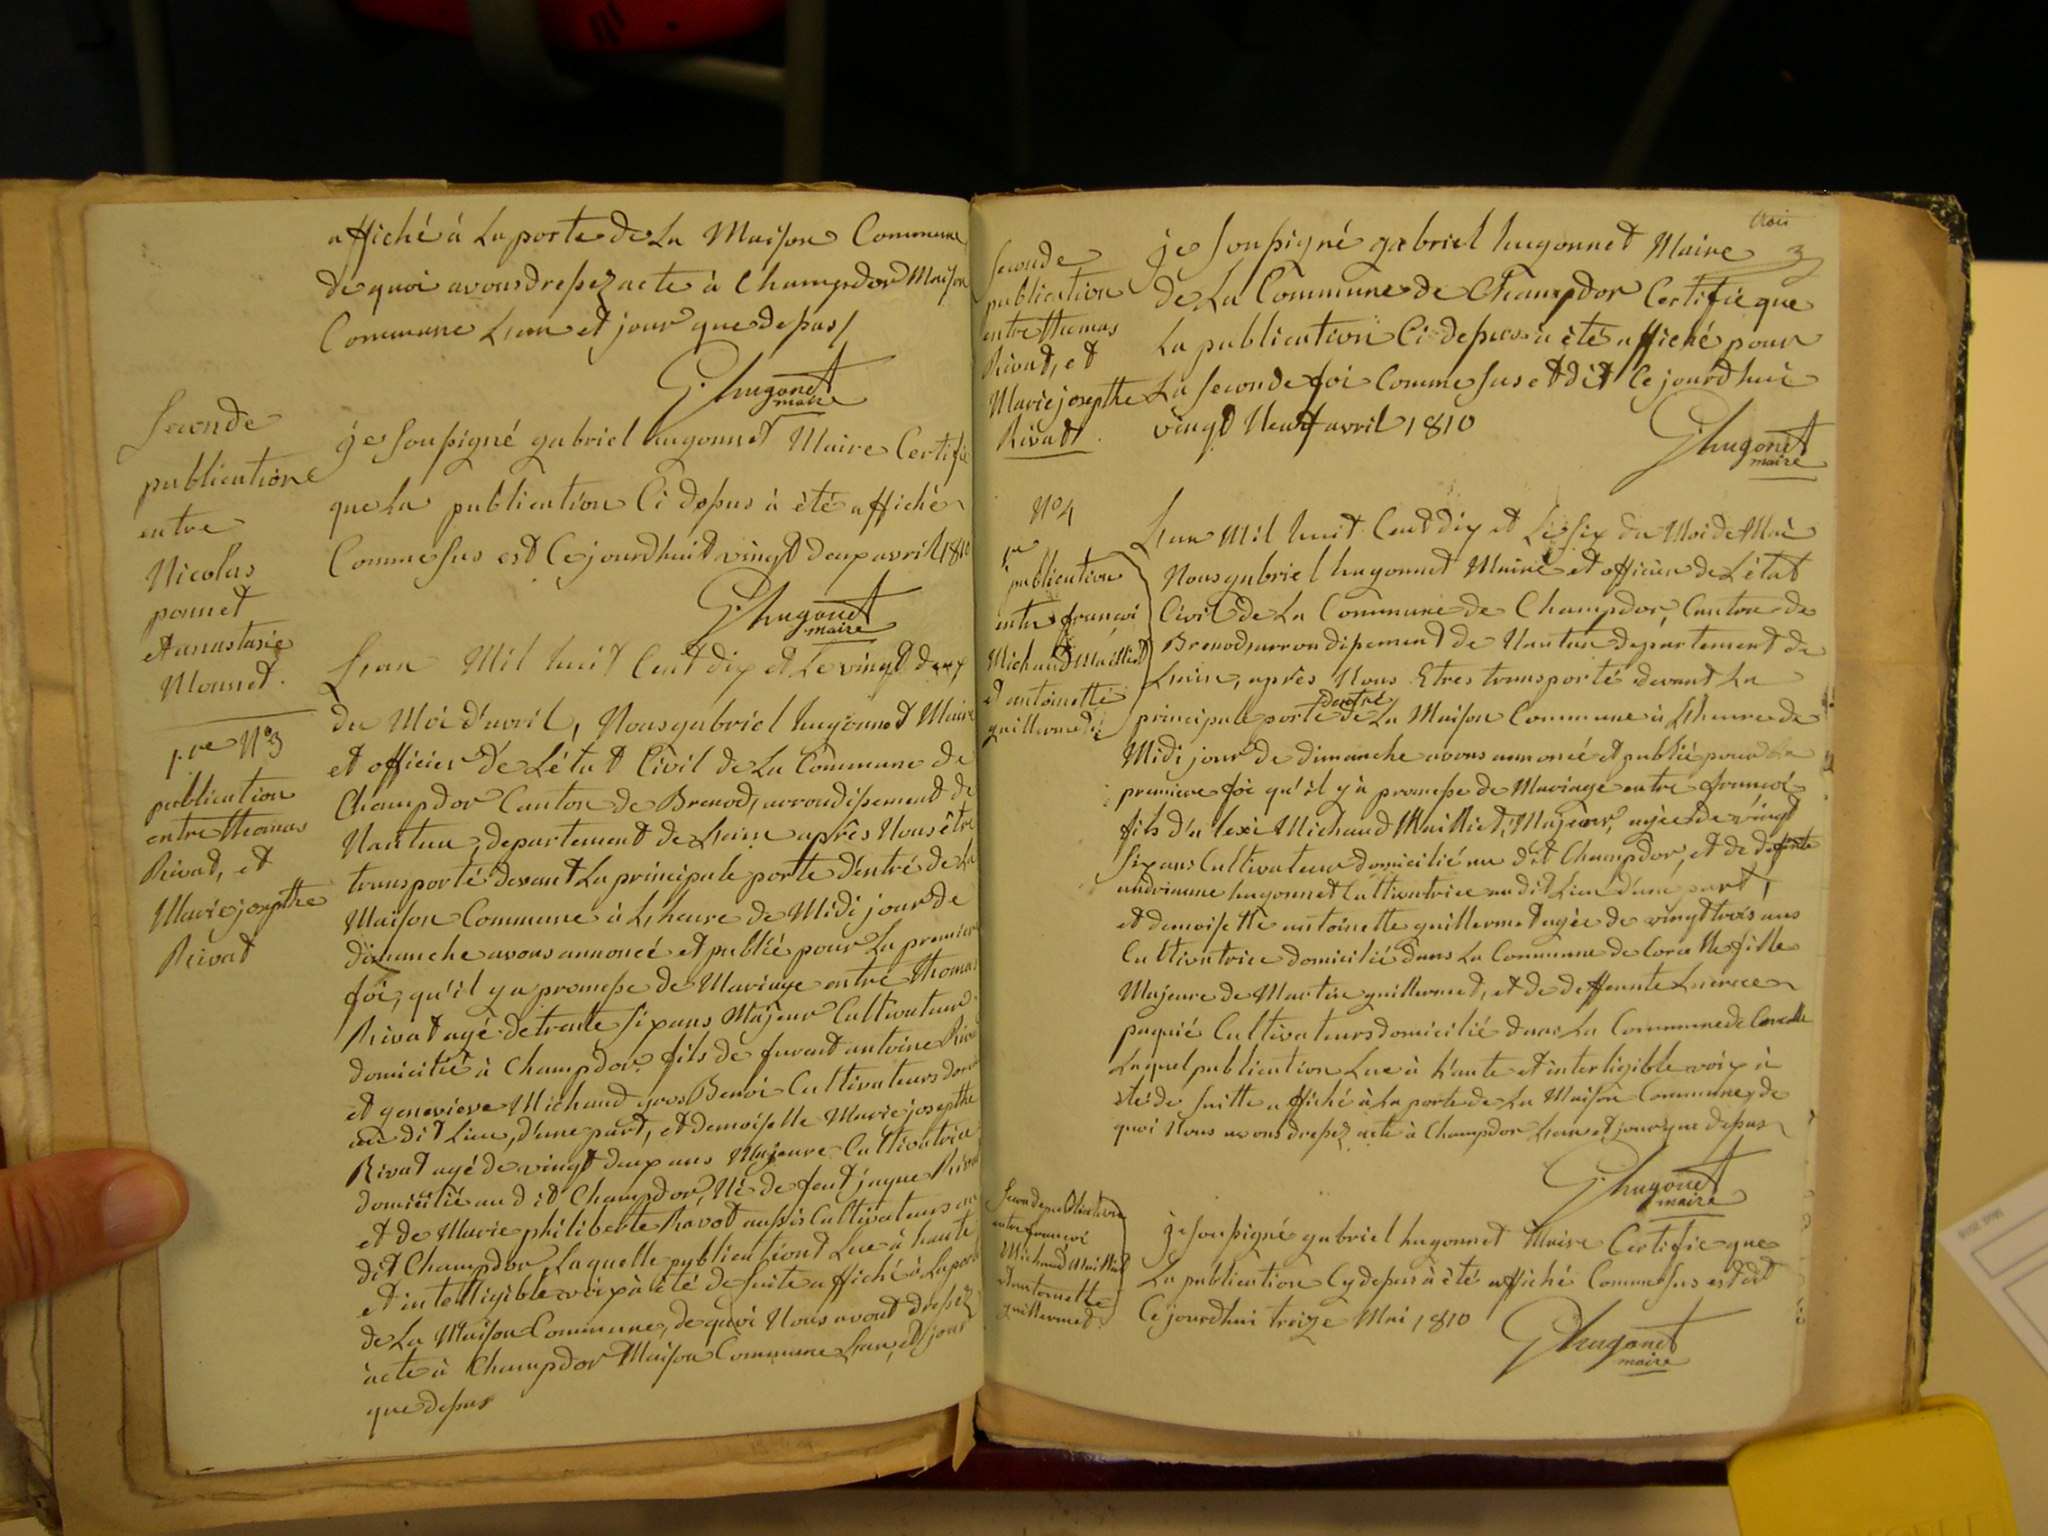 affiché à La porte de La Maison Commune
de quoi avons dressez acte à Champdor Maison
Commune L'an et jour que dessus /
G. hugonet
maire
Seconde
publication
entre
Nicolas
ponnet
et anastasie
Monnet.
je soussigné gabriel hugonnet Maire Certifie
que La publication Ci dessus à été affiché
Comme sus est Cejourdhuit vingt deux avril 1810
G. hugonet
maire
1.re N°3
publication
entre thomas
Rivat, et
Marie josepthe
Rivat
L'an Mil huit Cent dix et Le vingt deux
du Moi d'avril, Nous gabriel hugonnet Maire
et officier de L'état Civil de La Commune de
Champdor Canton de Brenod, arrondissement de
Nantua, departement de L'ain après Nous être
transporté devant La principale porte d'entré de La
Maison Commune à L'heure de Midi jour de
dimanche avons annoncé et publié pour La premiere
foi, qu'il y a promesse de Mariage entre thomas
Rivat agé de trente six ans Majeur Cultivateur
domicilié à Champdor fils de furent antoine Rivat
et genevieve Michaud gros Benoi Cultivateurs
au dit Lieu, d'une part, et demoiselle Marie josepthe
Rivat agé de vingt deux ans Majeure Cultivatrice
domicilié au dit Champdor, Né de feut jaque Rivat
et de Marie philiberte Ravot aussis Cultivateurs au
dit Champdor Laquelle publicationt Lue à haute
et intelligible voix à été de suite affiché à La porte
de La Maison Commune, de quoi Nous avont dressez
acte à Champdor Maison Commune L'an, et jour
que dessus
trois
3
Seconde
publication
entre thomas
Rivat, et
Marie josepthe
Rivat.
je soussigné gabriel hugonnet Maire
de La Commune de Champdor Certifie que
La publication Ci dessus à été affiché pour
La seconde foi Comme sus et dit Cejourdhui
vingt Neuf avril 1810
G. hugonet
maire
N°4
1re
publication
entre françoi
Michaud Maillet
et antoinette
guillermet
L'an Mil huit Cent dix et Le six du Moi de Mai
Nous gabriel hugonnet Maire et officier de L'état
Civil de La Commune de Champdor, Canton de
Brenod, arrondissement de Nantua departement de
L'ain, après Nous Etres transporté devant La
principale porte dentré de La Maison Commune à L'heure de
Midi jour de dimanche avons annoncé et publié pour La
premiere foi qu'il y à promesse de Mariage entre françoi
fils d'alexi Michaud Mailliet, Majeur, agée de vingt
six ans Cultivateur domicilié au dit Champdor, et de defunte
andrianne hugonnet Cultivatrice au dit Lieu d'une part,
et demoiselle antoinette guillermet agée de vingt trois ans
Cultivatrice domicilié dans La Commune de Corcelle fille
Majeure de Martin guillermet, et de deffeunte
Cultivateurs domicilié dans La Commune de Corcelle
Laquel publication Lue à h'aute et interligible voix à
été de suitte affiché à La porte de La Maison Commune, de
quoi Nous avons dressez acte à Champdor L'an et jour que dessus
G. hugonet
maire
Seconde publication
entre françoi
Michaud Mailliet
et antoinette
guillermet
je soussigné gabriel hugonnet Maire Certifie que
La publication Cy dessus à été affiché Comme sus est dit
Cejourdhui treize Mai 1810
G. hugonet
maire